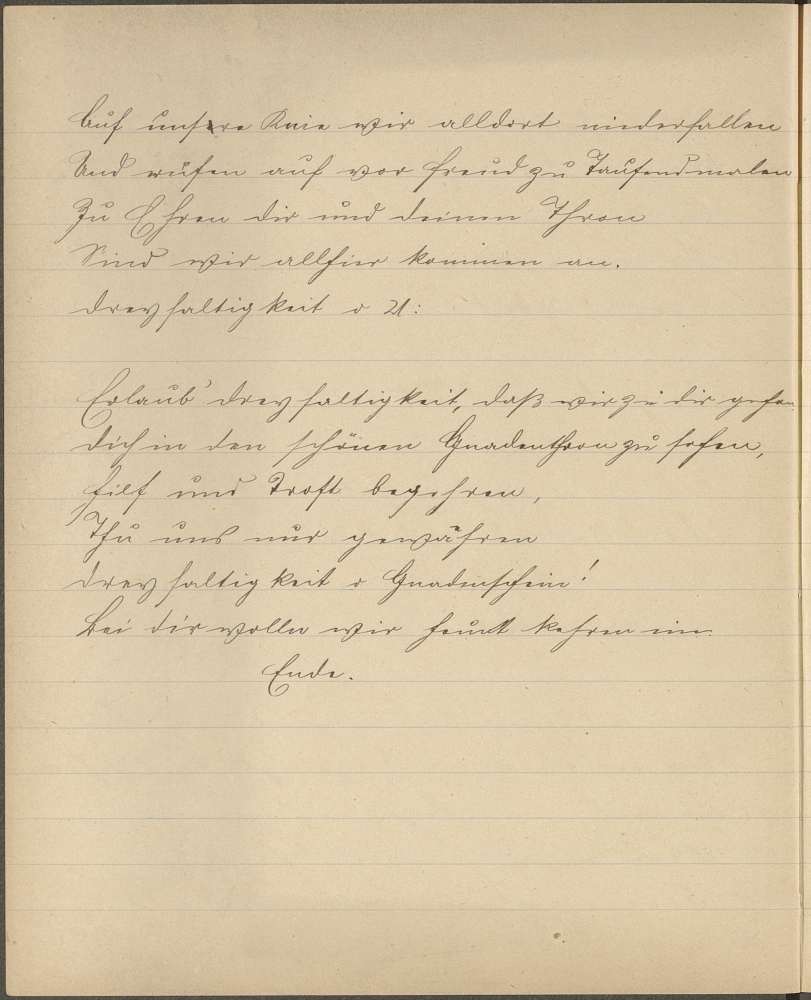 Auf unsere Knie wir alldort niederfallen
Und rufen auf vor Freud zu Tausendmalen
Zu Ehren dir und deinen Thron
Sind wir allhier kommen an.
Dreyfaltigkeit o
Erlaub' Dreyfaltigkeit, daß wir zu dir gehen
Dich in den schönen Gnadenthron zu sehen,
Hilf und Trost begehren,
Thu uns nur gewähren
Dreyfaltigkeit o Gnadenschein!
Bei dir wolln wir heunt kehren ein
Ende.